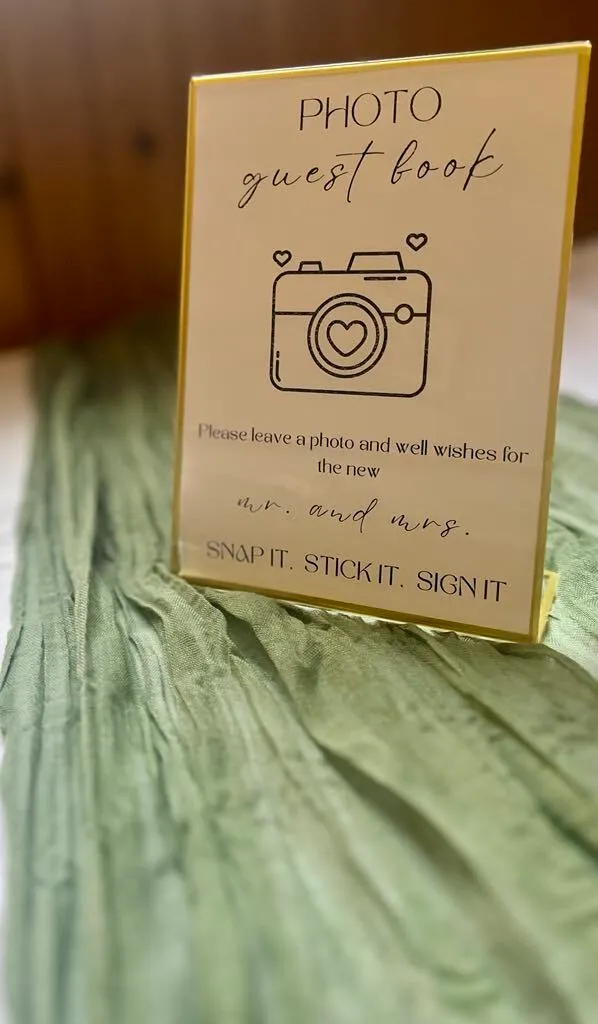 PHOTO
guest book
Please leave a photo and well wishes for
the new
mr. and mrs.
SNAP IT. STICK IT. SIGN IT